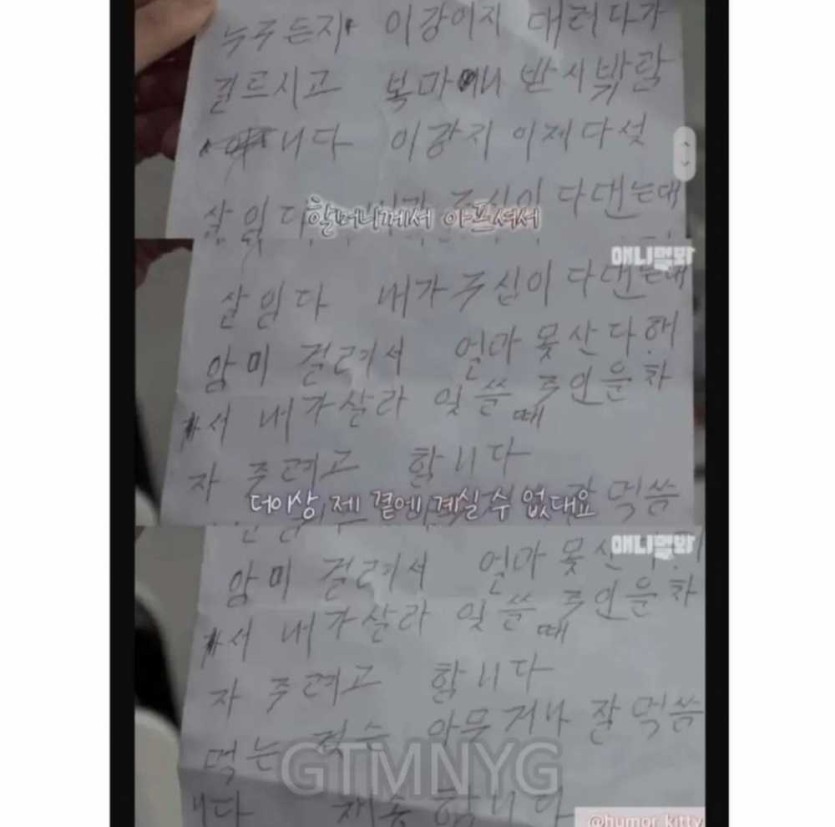 누구든지 이강이지 대려다가
길르시고 복마니 받시밖람
니다 이강지 이제다섯
살임다 내가 주심이 다댄는대
할머니께서 아프셔서
애니멀봐
살임다 내가 주심이 다댄는대
암미 걸려서 얼마 못산다해
서 내가살라 잇쓸때 주인운차
자 주려고 합니다
더이상 제 곁에 계실 수 없대요
잘먹씀
애니멀봐
암미 걸려서 얼마 못산
서 내가살라 잇쓸때 주인운차
자 주려고 합니다
먹는 것슨 아무거나 잘먹씀
GTMNYG
니다 합니다
@humor_kitty